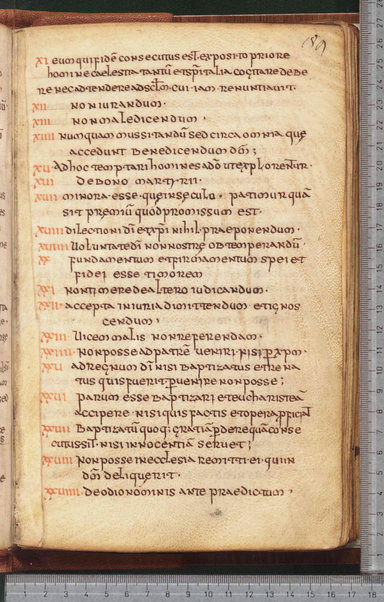 XI eum qui fidē consecutus est exposito priore
homine caelestia tantū et spiritalia cogitare debe
re nec adtendere ad sclm cui iam renuntiavit.
XII non iurandum.
XIII non maledicendum.
XIIII numquam mussitandū sed circa omnia que
accedunt benedicendum dm;
XV Adhoc temptari homines a dō ut explorentur.
XVI de bono martyrii.
XVII minora esse que in seculo patimur quā
sit premiū quod promissum est.
XVIII dilectioni dī et xpi nihil praeponendum.
XVIIII Voluntati dī non nostre obtemperandū
XX fundamentum et firmamentum spei et
fidei esse timorem
XXI non timere de altero iudicandum.
XXII accepta iniuria dimittendum et ignos
cendum,
XXIII Vicem malis non referendam.
XXIIII non posse ad patrē veniri nisi p xpm.
XXV ad regnum dī nisi baptizatus et rena
tus quis fuerit pvenire non posse;
XXVI parum esse baptizari et eucharisteā
accipere nisi quis factis et opera pficiat
XXVII Baptizatū quoq; gratiā pdere quā conse
cutus sit. nisi innocentiā servet;
XXVIII Non posse in ecclesia remitti ei qui in
dm deliquerit.
XXVIIII de odio nominis ante praedictum,
1 2 3 4 5 6 7 8 9 10 11 12 13 14 15 16 17 18